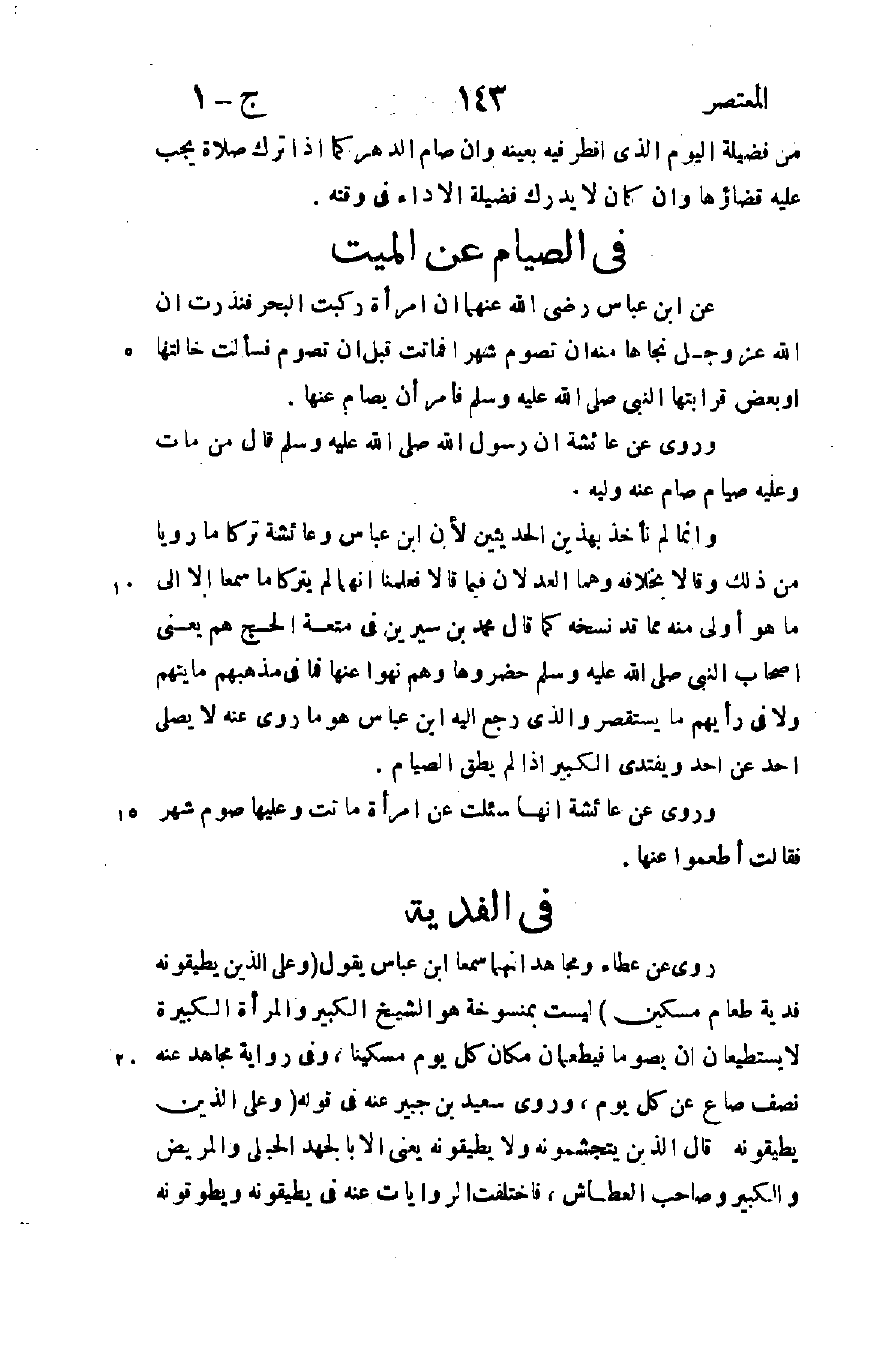 المعتصر ١٤٣ ج - ١
من فضيلة اليوم الذى افطر فيه بعينه وان صام الدهر كما اذا ترك صلاة يجب
عليه قضاؤها وان كان لا يدرك فضيلة الاداء فى وقته .
فى الصيام عن الميت
عن ابن عباس رضى الله عنهما ان امرأة ركبت البحر فنذرت ان
الله عز وجـل نجاها منه ان تصوم شهرا فماتت قبل ان تصوم فسألت خالتها ٥
او بعض قرابتها النبى صلى الله عليه وسلم فأمر أن يصام عنها .
وروى عن عائشة ان رسول الله صلى الله عليه وسلم قال من مات
وعليه صيام صام عنه وليه .
وانما لم نأخذ بهذين الحديثين لأن ابن عباس وعائشة تركا ما رويا
من ذلك وقالا بخلافه وهما العدلان فيما قالا فعلمنا انهما لم يتركا ما سمعا إلا الى ١٠
ما هو أولى منه مما قد نسخه كما قال محمد بن سيرين فى متعـة الحـج هم يعـنى
اصحاب النبى صلى الله عليه وسلم حضروها وهم نهوا عنها فما فى مذهبهم ما يتهم
ولا فى رأيهم ما يستقصر والذى رجع اليه ابن عباس هو ما روى عنه لا يصلى
احد عن احد ويفتدى الكبير اذا لم يطق الصيام .
وروى عن عائشة انهـا سئلت عن امرأة ماتت وعليها صوم شهر ١٥
فقالت أطعموا عنها .
فى الفدية
روى عن عطاء ومجاهد انهما سمعا ابن عباس يقول (وعلى الذين يطيقونه
فدية طعام مسكين ) ليست بمنسوخة هو الشيخ الكبير والمرأة الكبيرة
لا يستطيعان ان يصوما فيطعمان مكان كل يوم مسكينا ، وفى رواية مجاهد عنه ٢٠
نصف صاع عن كل يوم ، وروى سعيد بن جبير عنه فى قوله( وعلى الذين
يطيقونه قال الذين يتجشمونه ولا يطيقونه يعنى الا بالجهد الحبلى والمريض
والكبير وصاحب العطـاش ، فاختلفت الروايات عنه فى يطيقونه ويطوقونه